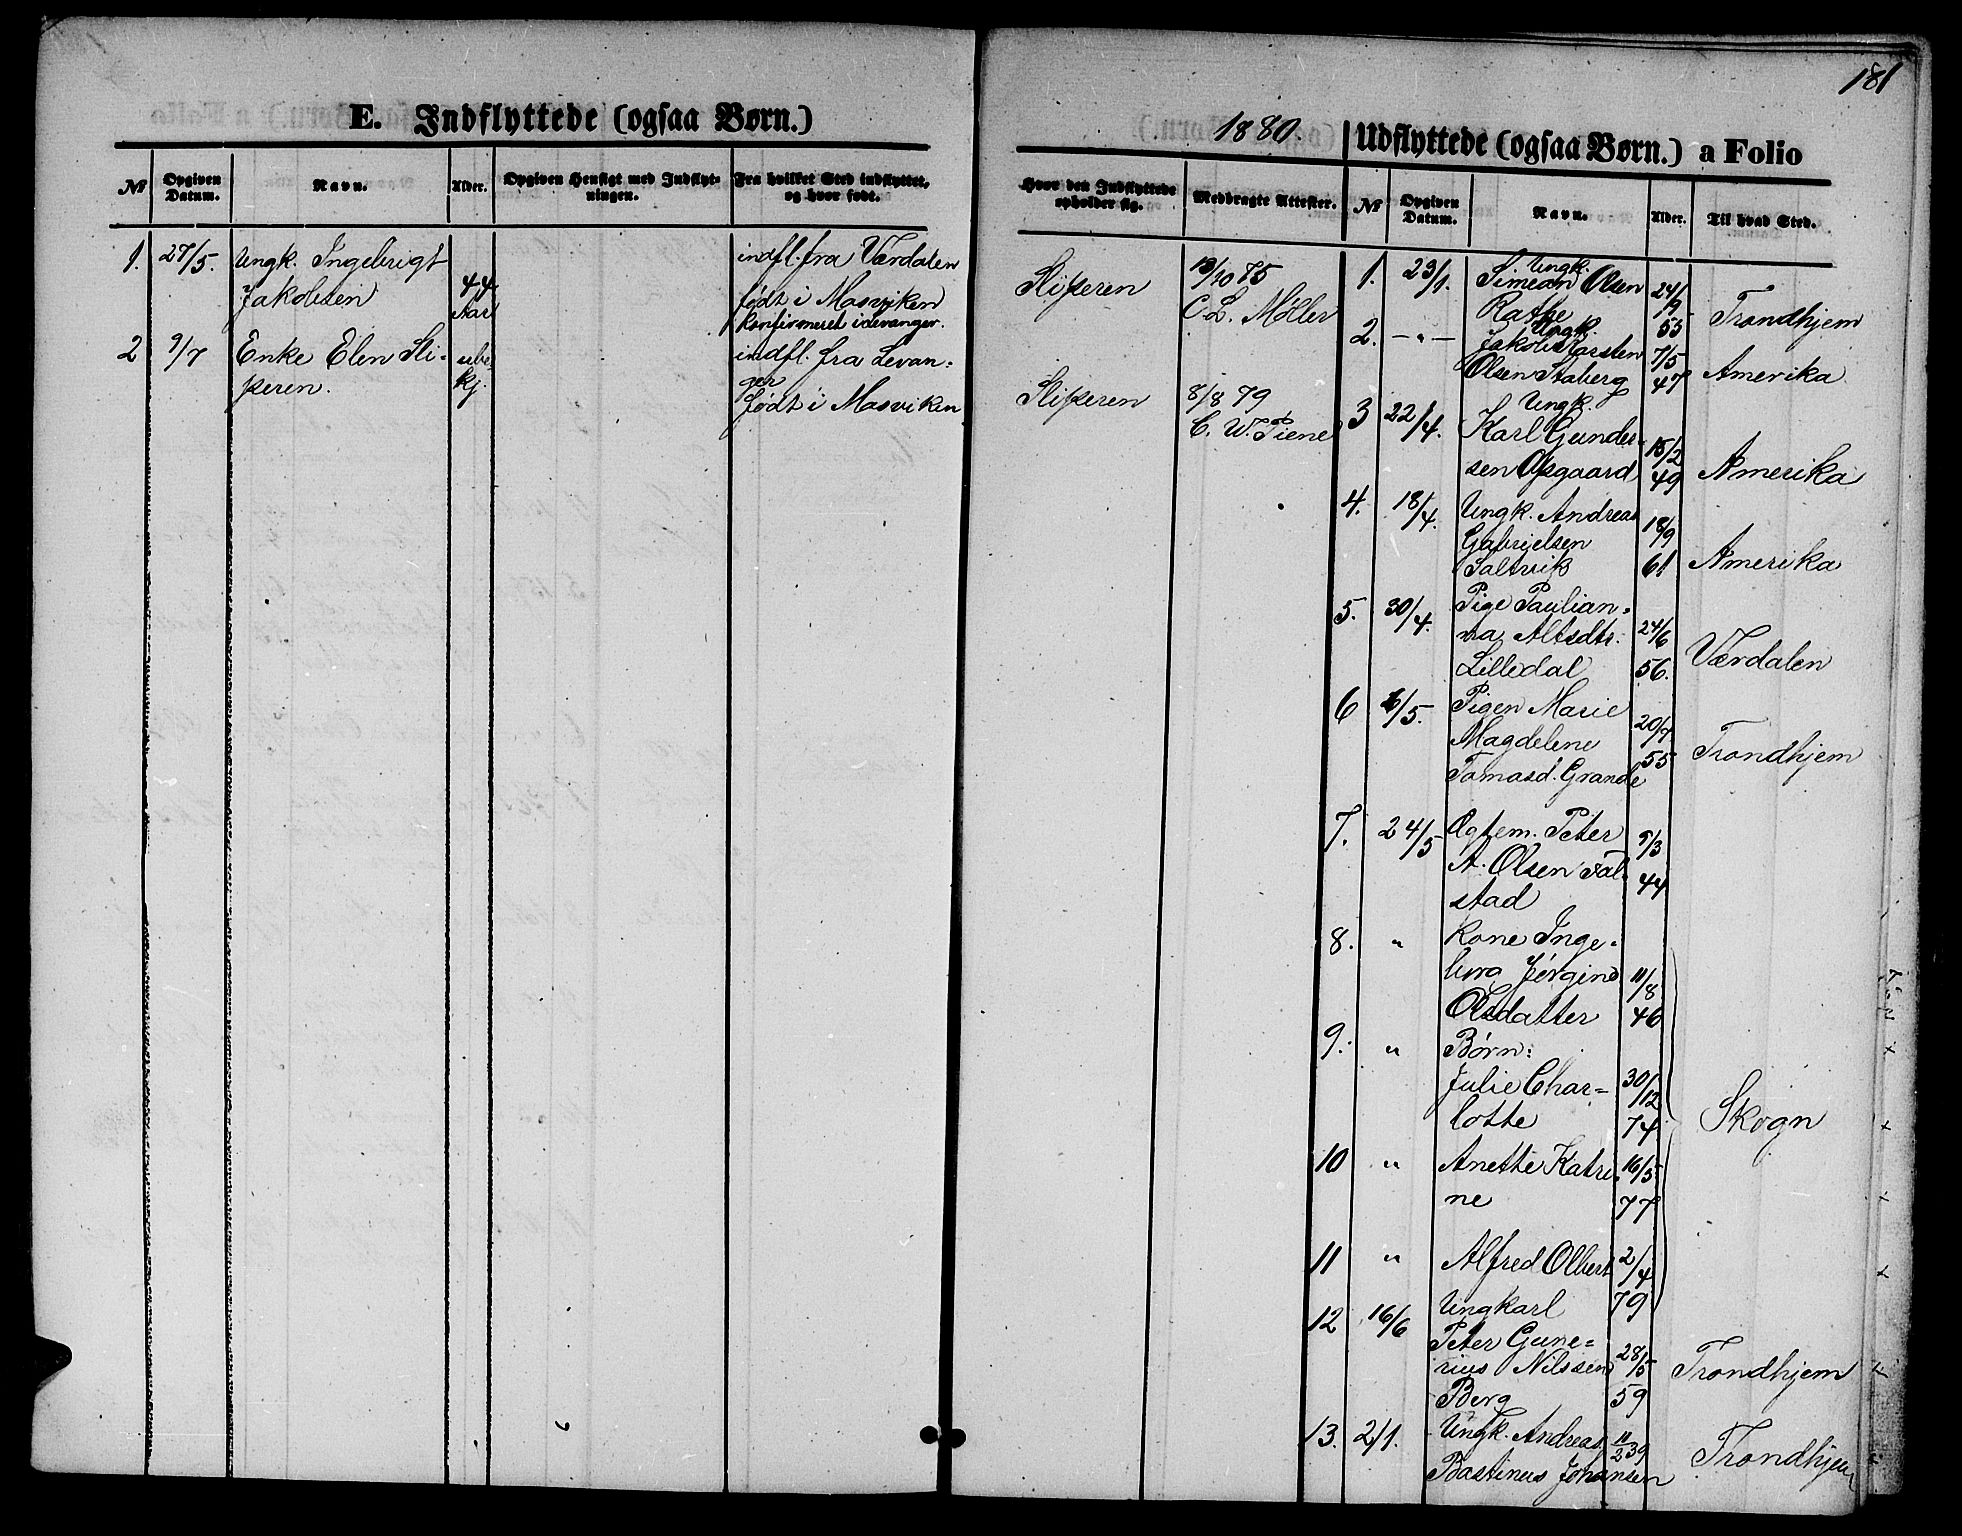 181
E. Indflyttede (ogsaa Børn.)
№ Opgiven Datum. Navn. Alder. Opgiven Hensigt med Indflytningen. Fra hvilket Sted indflyttet, og hvor født.
1. 27/5. Ungk. Ingebrigt
Jakobsen
44
Aar
indfl. fra Værdalen
født i Mosviken
konfirmeret i Levanger.
2 9/7 Enke Elen Sli-
peren.
ube
kj.
indfl. fra Levan=
ger
født i Mosviken
1880.
Udflyttede (ogsaa Børn.) a Folio
Hvor den Indflyttede opholder sig. Medbragte Attester. № Opgiven Datum. Navn. Alder. Til hvad Sted.
Sliperen
13/10 75
C. L. Møller
Sliperen
8/8 79
C. W. Piene
1. 23/1. Ungk.
Simeon Olsen
Rathe
24/9
55
Trondhjem
2. -"- Ungk.
Jakob Karsten
Olsen Staberg
7/5
47
Amerika
3 22/4. Ungk.
Karl Gunder-
sen Opsgaard
15/2
49
Amerika
4. 18/4. Ungk. Andreas
Gabrielsen
Saltvik
18/9
61
Amerika
5. 30/4. Pige Paulian-
na Altsdtr.
Lilledal
24/6
56.
Værdalen
6 6/5. Pigen Marie
Magdelene
Tomasd. Grande
20/7
55
Trondhjem
7. 24/5 Ægtem. Peter
A. Olsen Fal-
stad
5/3
44
8. " Kone Inge-
borg Jørgine
Olsdatter
11/8
46
9. " Børn:
Julie Char=
lotte
30/12
74
Skogn
10 " Anette Katri-
ne
16/5
77
11 " Alfred Olbert
2/4
79
12 16/6 Ungkarl
Peter Gune=
rius Nilssen
Berg
28/5
59
Trondhjem
13. 2/1. Ungk. Andreas
Bastinus Johansen
11/2 39
Trondhjem